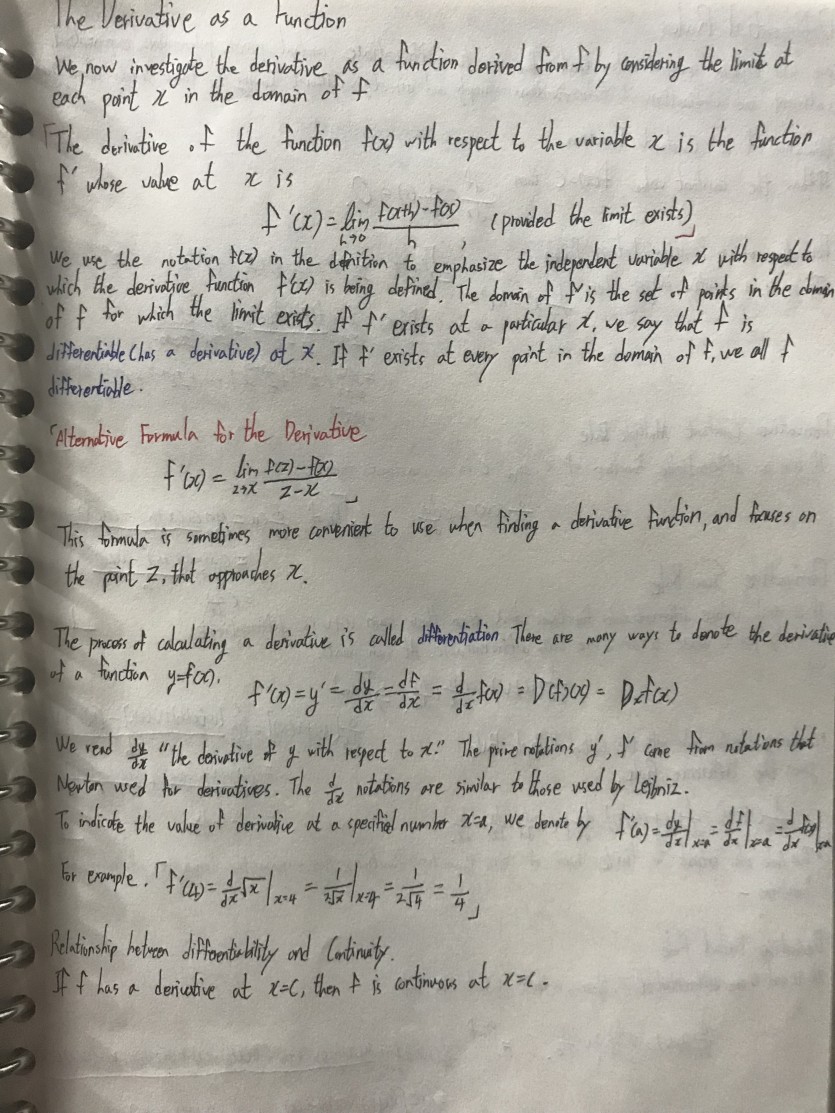 The Derivative as a Function
We now investigate the derivative as a function derived from f by considering the limit at
each point x in the domain of f
「The derivative of the function f(x) with respect to the variable x is the function
f' whose value at x is
f'(x) = lim h→0 f(x+h)-f(x) / h , (provided the limit exists)」
We use the notation f(x) in the definition to emphasize the independent variable x with respect to
which the derivative function f'(x) is being defined. The domain of f' is the set of points in the domain
of f for which the limit exists. If f' exists at a particular x, we say that f is
differentiable (has a derivative) at x. If f' exists at every point in the domain of f, we call f
differentiable.
「Alternative Formula for the Derivative
f'(x) = lim z→x f(z)-f(x) / z-x 」
This formula is sometimes more convenient to use when finding a derivative function, and focuses on
the point z, that approaches x.
The process of calculating a derivative is called differentiation. There are many ways to denote the derivative
of a function y=f(x).
f'(x) = y' = dy/dx = df/dx = d/dx f(x) = D(f)(x) = Dxf(x)
We read dy/dx "the derivative of y with respect to x." The prime notations y', f' come from notations that
Newton used for derivatives. The d/dx notations are similar to those used by Leibniz.
To indicate the value of derivative at a specified number x=a, we denote by f'(a) = dy/dx|x=a = df/dx|x=a = d/dx f(x)|x=a
For example.「f'(4) = d/dx √x |x=4 = 1/2√x |x=4 = 1/2√4 = 1/4」
Relationship between differentiability and Continuity.
If f has a derivative at x=c, then f is continuous at x=c.